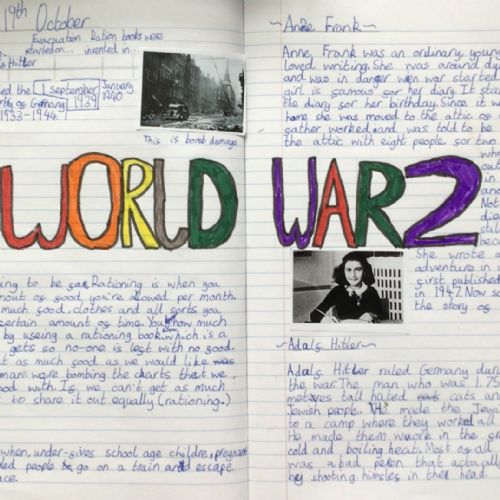 19th October
Evacuation Ration books were
started on... invented in...
Hitler
1 September January
1939 1940
of Germany
1933-1944
This is bomb damage
WORLD
ing to be safe. Rationing is when you
amount of good you're allowed per month.
much good, clothes and all sorts you
certain amount of time. You know much
by useing a rationing book, which is a
gets so no-one is lest with no good.
as much good as we would like
were bombing the charts that we
good with. Is we can't get as much
to share it out equally (rationing.)
when, under-gives school age childre, pregnant
people go on a train and escape
place.
~Anne Frank~
Anne Frank was an ordinary young
loved writing. She was around
and was in danger wen war started
girl is gamous gor her diary. It sta
the diary gor her birthday. Since it wa
home she was moved to the attic og
gather worked and was told to be
the attic with eight people gor two
out
in
Not
die
still
WAR 2
She wrote a
adventure in
girst published
in 1947. Now
the story og
~Adolg Hitler~
Adolg Hitler ruled Germany duri
the war. The man who was 1.75
metres tall hated cats and
Jewish people. He made the Jewi
to a camp where they worked all
He made them worre in the
cold and boiling heat. Most og all
was a bad person that actually
by shooting himsles in the head.